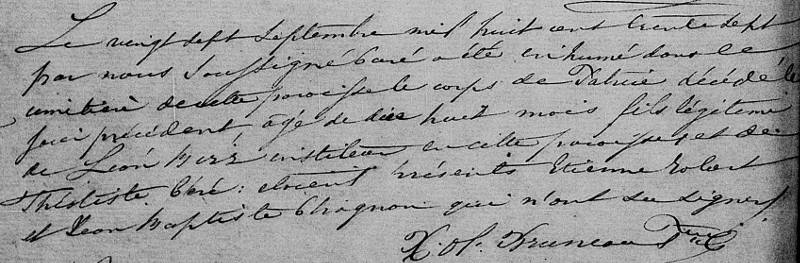 Le vingt sept Septembre mil huit cent trente sept
par nous Soussigné Curé a été inhumé dans le
cimetière de cette paroisse le corps de Patrice décédé le
jour précédent, agé de dix huit mois fils légitime
de Léon instituteur en cette paroisse et de
Théotiste Céré : étoient présents Etienne Robert
et Jean Baptiste Chagnon qui n'ont su signer
Bruneau Ptre